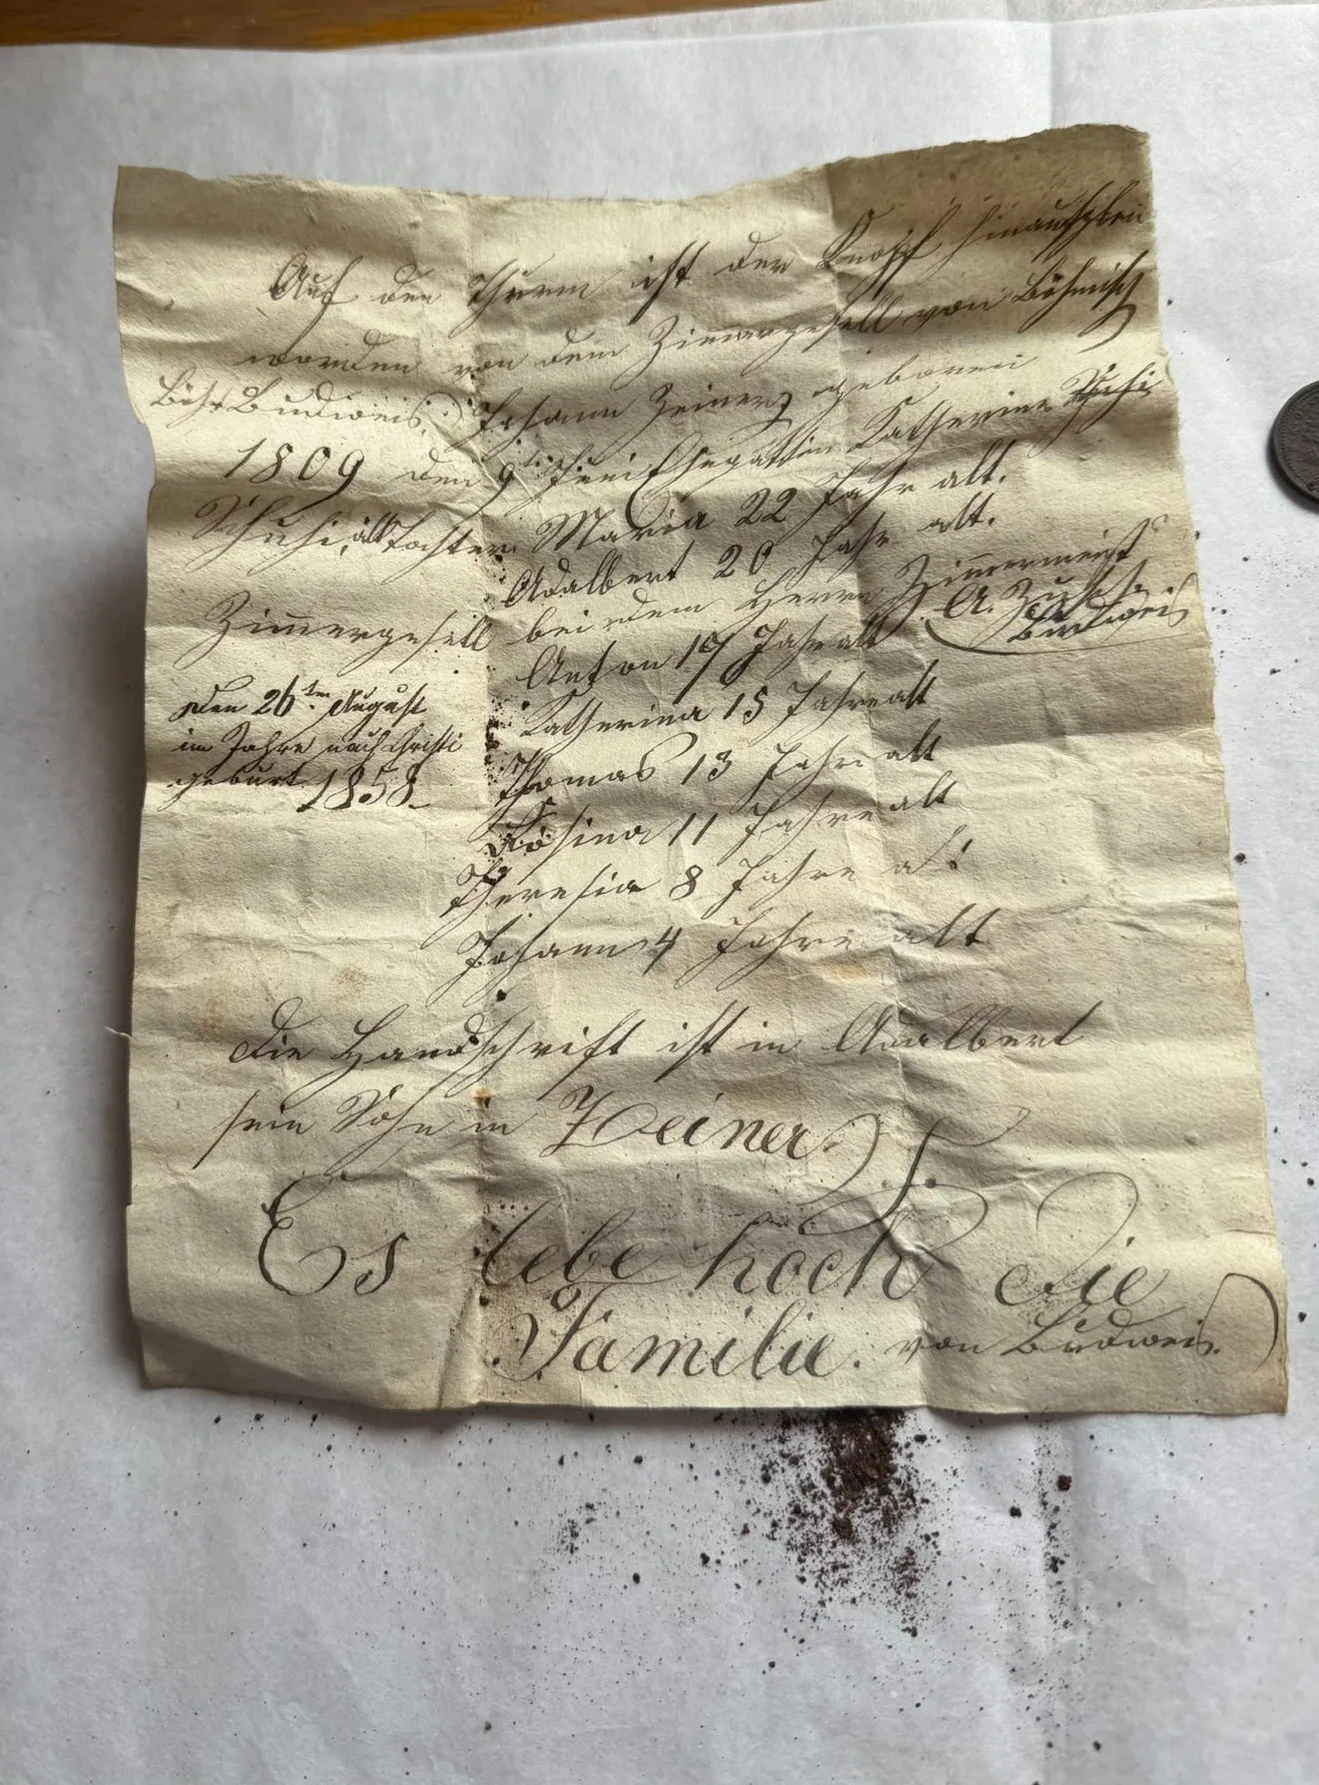 Auf den Thurm ist der Knopf hinaufgeben
worden von dem Zimmergesell von Böhmisch
Böh: Budweis. Johann Zeiner geboren
1809 den 9t Juni Ehegattin Katherina
Tochter Maria 22 Jahr alt.
Adalbert 20 Jahr alt.
Zimmergesell bei dem Herrn Zimmermeist
A. Budweis
Anton 17 Jahre alt
Katherina 15 Jahre alt
Thomas 13 Jahre alt
Rosina 11 Jahre alt
Theresia 8 Jahre alt
Johann 4 Jahre alt
Den 26ten August
im Jahre nach Christi
geburt 1858
Die Handschrift ist in Adalbert
sein Sohn in Zeiner
Es lebe hoch die
Familie. von Budweis.